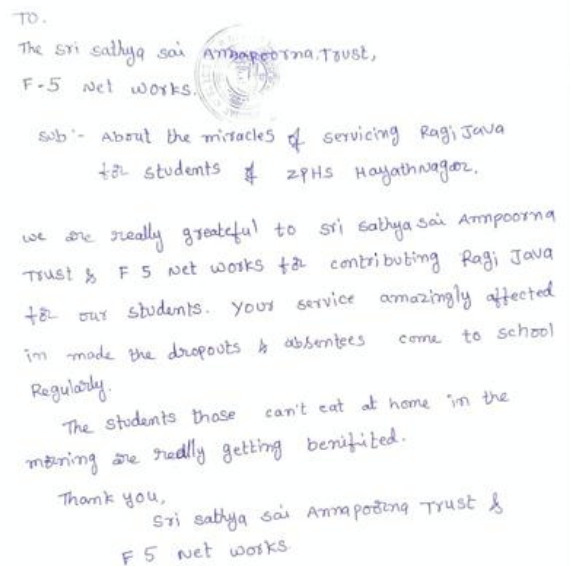 TO.
The sri sathya sai Annapoorna.Trust,
F-5 Net works.
Sub :- About the miracles of servicing Ragi Java
for students of ZPHS HayathNagar.
we are really greateful to sri sathya sai Annpoorna
Trust & F 5 Net works for contributing Ragi Java
for our students. Your service amazingly affected
in made the dropouts & absentees come to school
Regularly.
The students those can't eat at home in the
morning are really getting benifited.
Thank you,
Sri sathya sai Annapoorna Trust &
F 5 Net works.